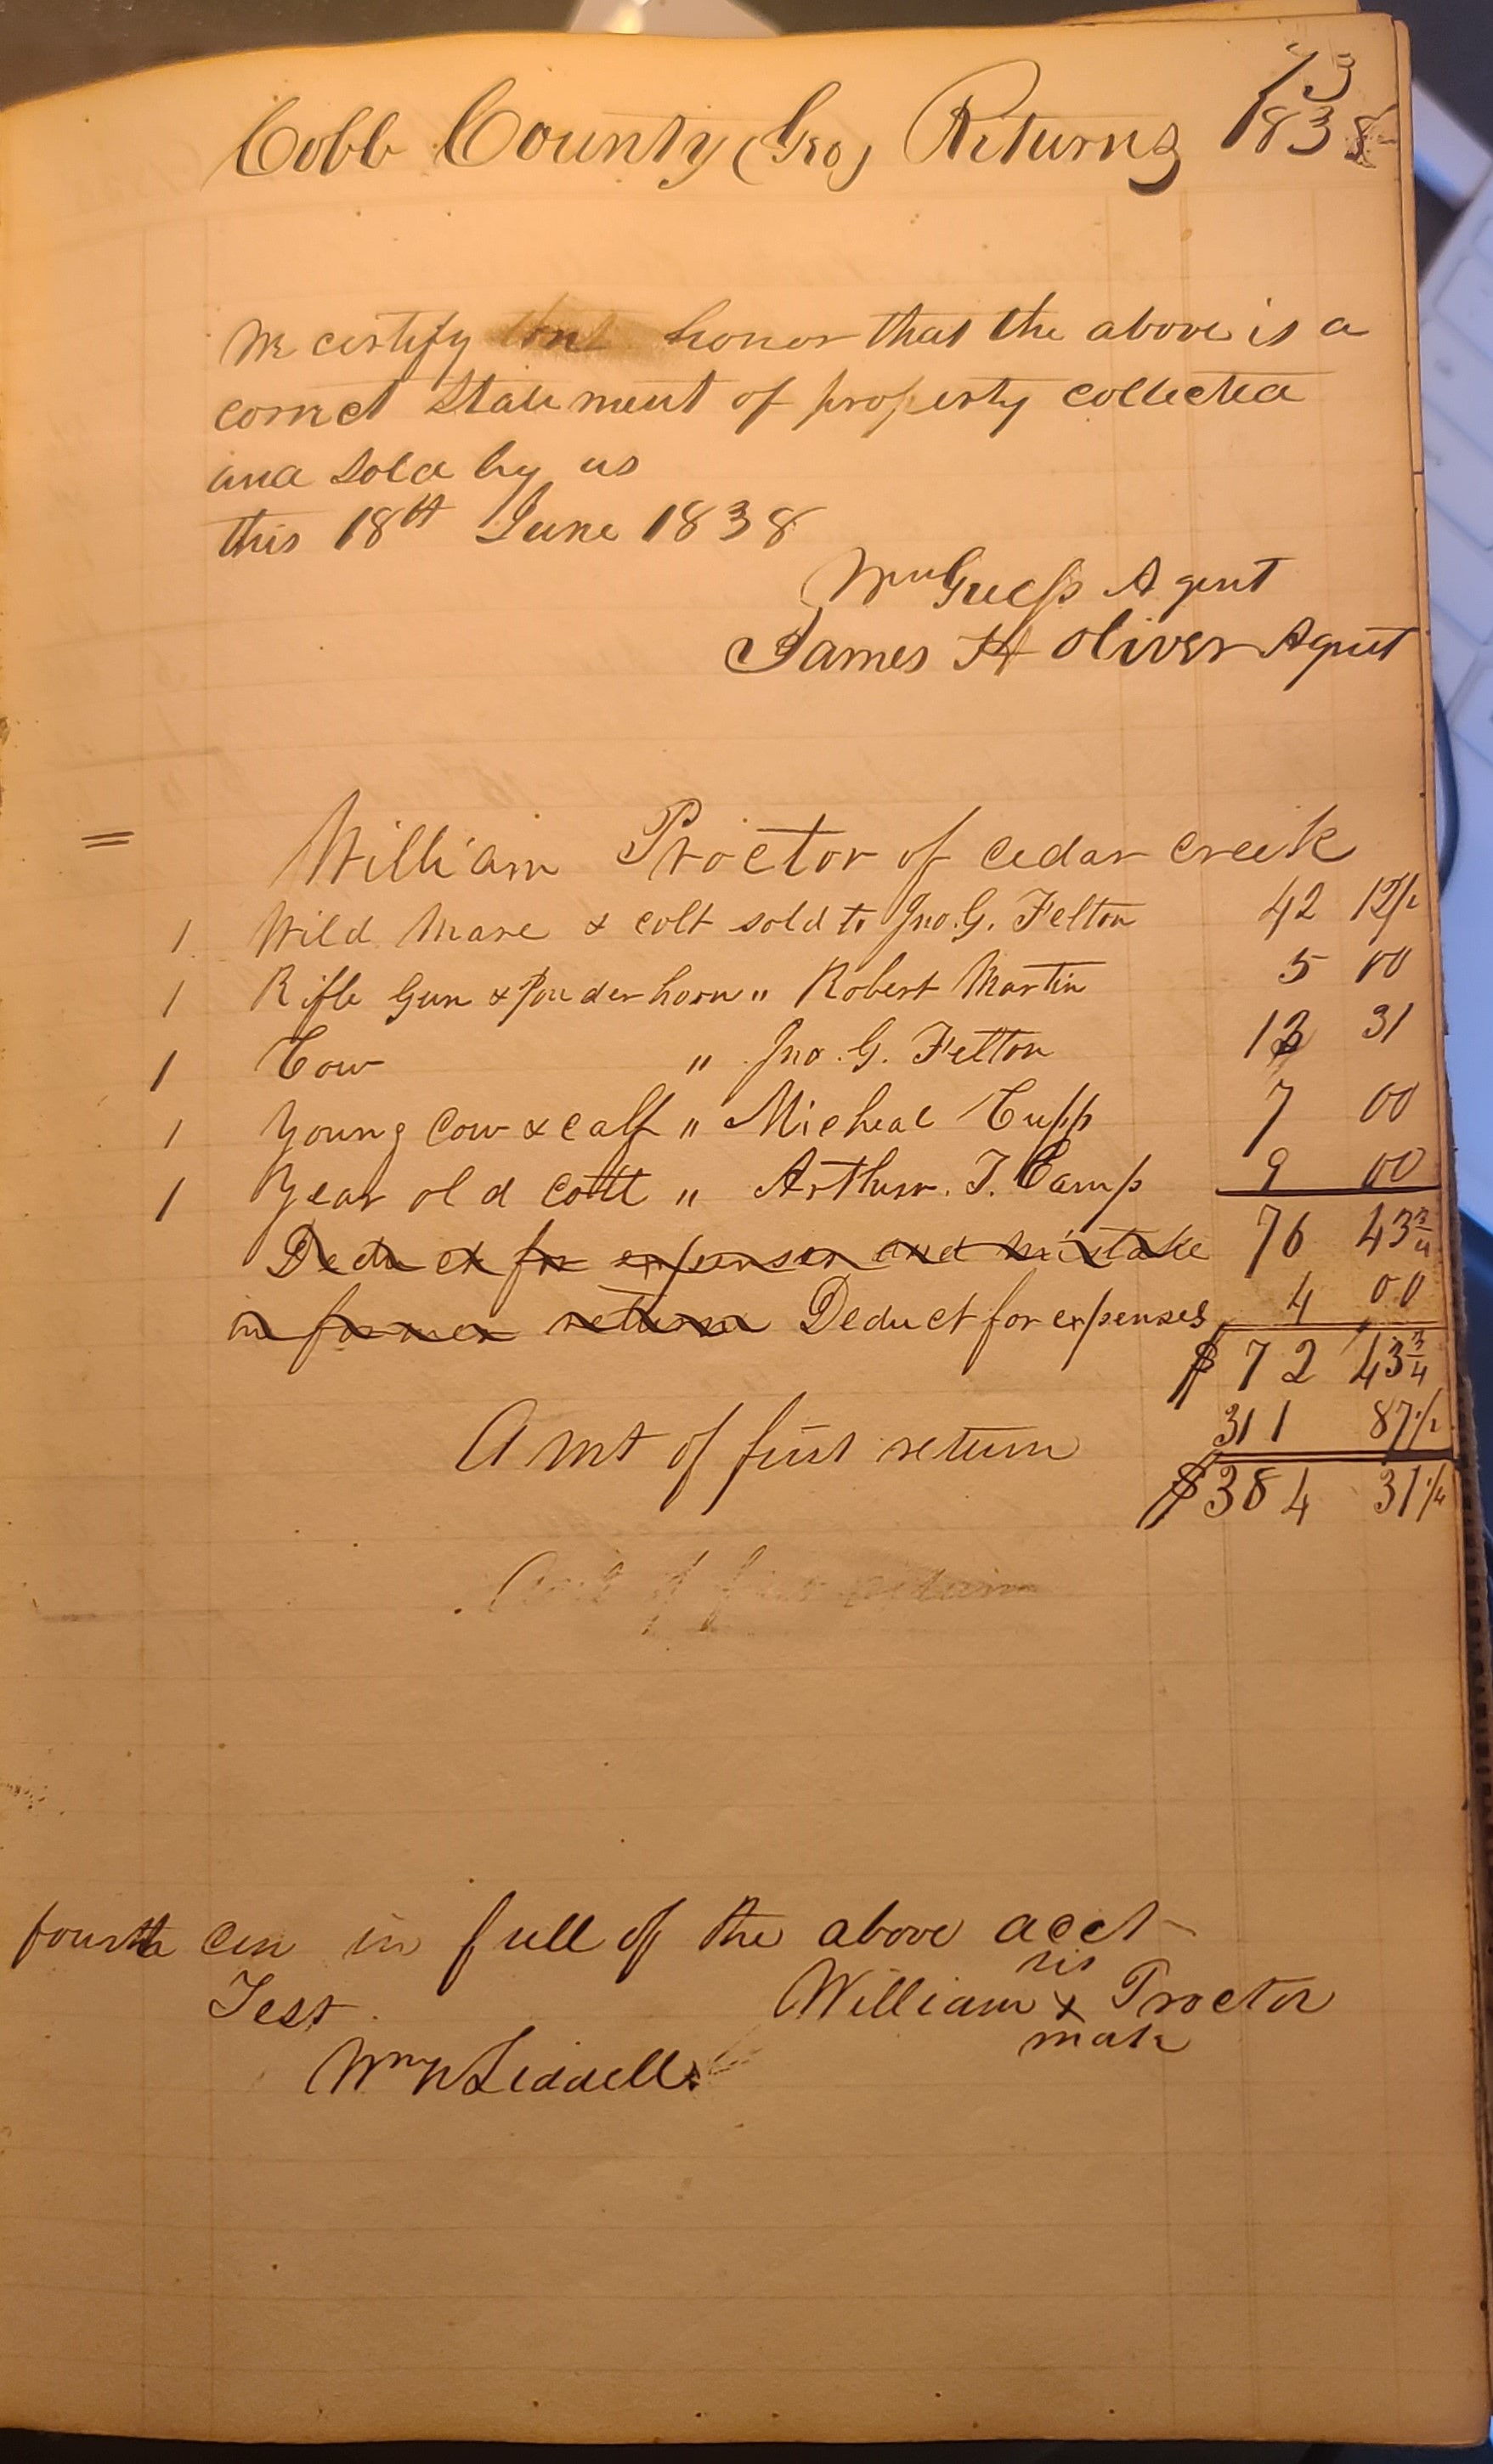 73
Cobb County (Geo) Returns 1838
We certify on honor that the above is a
correct Statement of property collected
and Sold by us
this 18th June 1838
Wm Guess Agent
James H Oliver Agent
= William Proctor of cedar creek
1 Wild Mare & colt sold to Jno. G. Felton 42 12 1/2
1 Rifle Gun & Powder horn " Robert Martin 5 00
1 Cow " Jno. G. Felton 13 31
1 Young Cow & calf " Micheal Cupp 7 00
1 Year old Colt " Arthur. T. Camp 9 00
Deduct for expenses and mistake 76 43 3/4
in former return Deduct for expenses 4 00
$ 72 43 3/4
Amt of first return 311 87 1/2
$ 384 31 1/4
Amt of first return
fourth in full of the above acct
his
Test. William x Proctor
mark
Wm N Liddell.